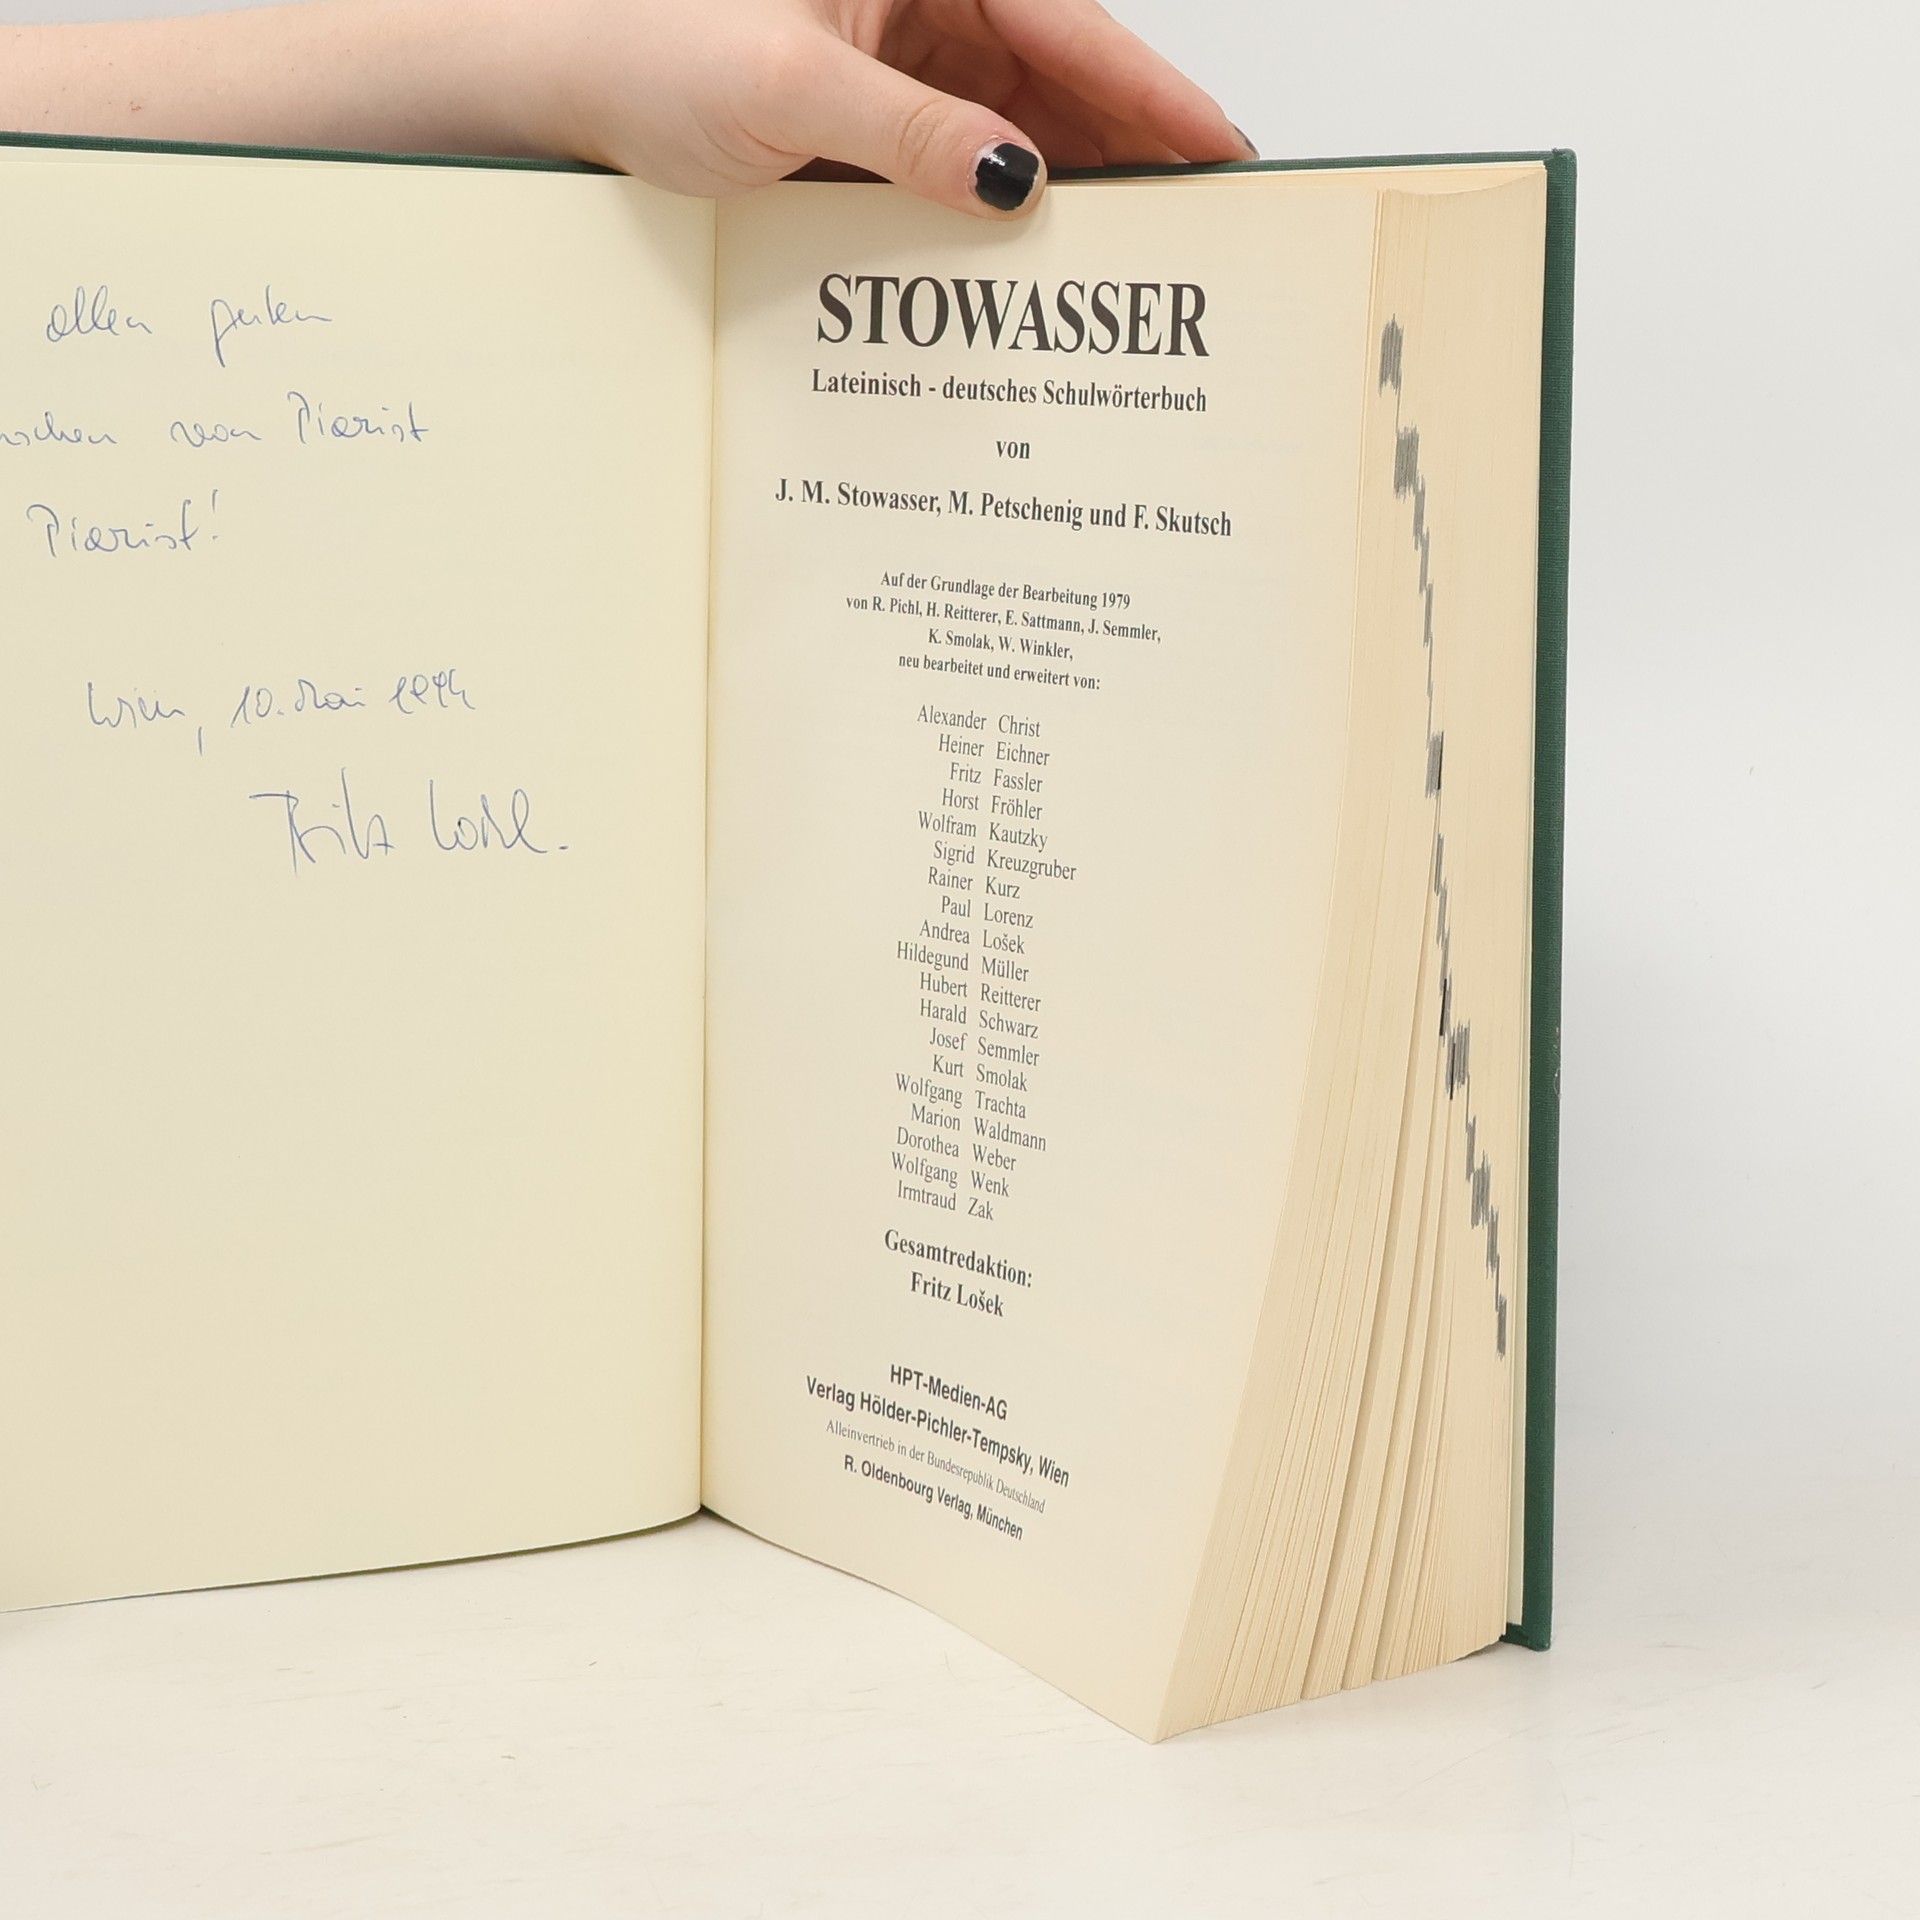 allen guten
nschen von Piarist
Piarist!
Wien, 10. Mai 1994
Fritz
STOWASSER
Lateinisch - deutsches Schulwörterbuch
von
J. M. Stowasser, M. Petschenig und F. Skutsch
Auf der Grundlage der Bearbeitung 1979
von R. Pichl, H. Reitterer, E. Sattmann, J. Semmler,
K. Smolak, W. Winkler,
neu bearbeitet und erweitert von:
Alexander Christ
Heiner Eichner
Fritz Fassler
Horst Fröhler
Wolfram Kautzky
Sigrid Kreuzgruber
Rainer Kurz
Paul Lorenz
Andrea Lošek
Hildegund Müller
Hubert Reitterer
Harald Schwarz
Josef Semmler
Kurt Smolak
Wolfgang Trachta
Marion Waldmann
Dorothea Weber
Wolfgang Wenk
Irmtraud Zak
Gesamtredaktion:
Fritz Lošek
HPT-Medien-AG
Verlag Hölder-Pichler-Tempsky, Wien
Alleinvertrieb in der Bundesrepublik Deutschland
R. Oldenbourg Verlag, München